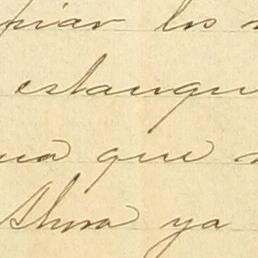 piar los
estanqu
ua que
Ahora ya